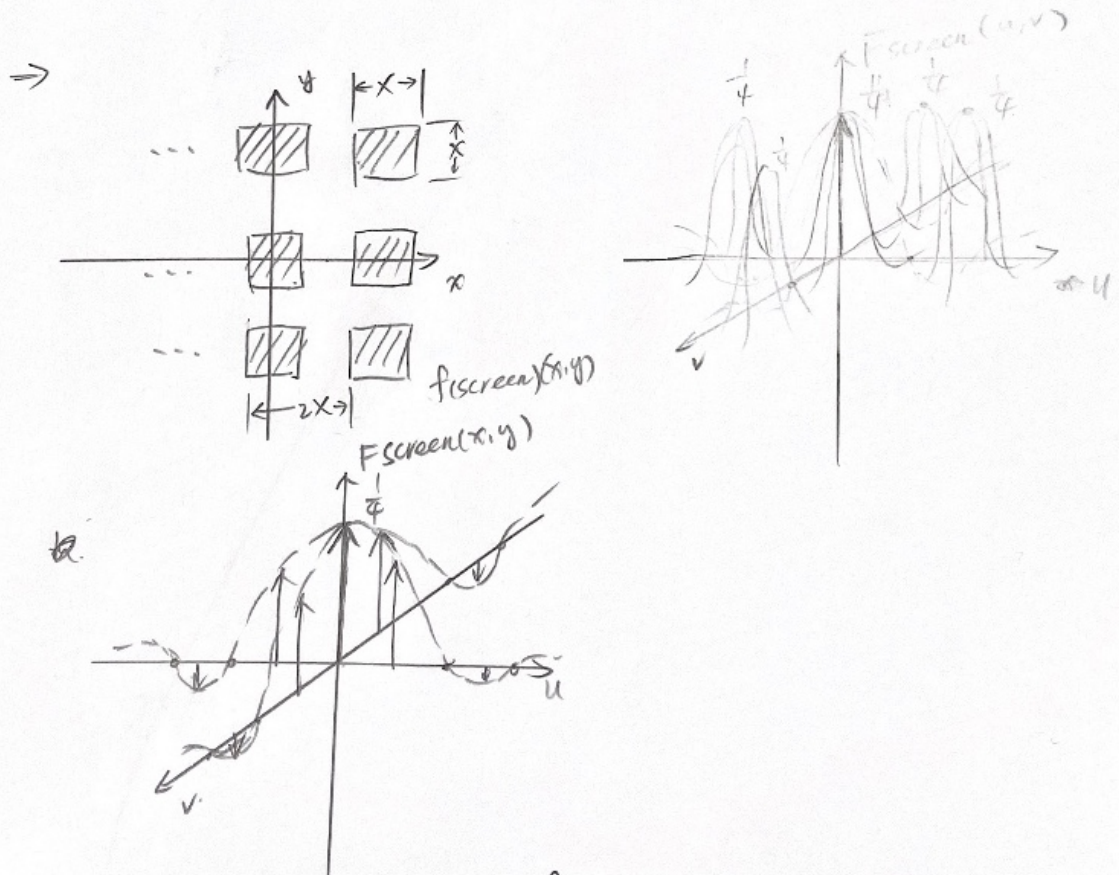 →
y
←X→
X
...
...
x
...
←2X→
f(screen)(x,y)
Fscreen(u,v)
1/4
1/4
1/4
1/4
1/4
u
v
Fscreen(x,y)
1/4
u
v